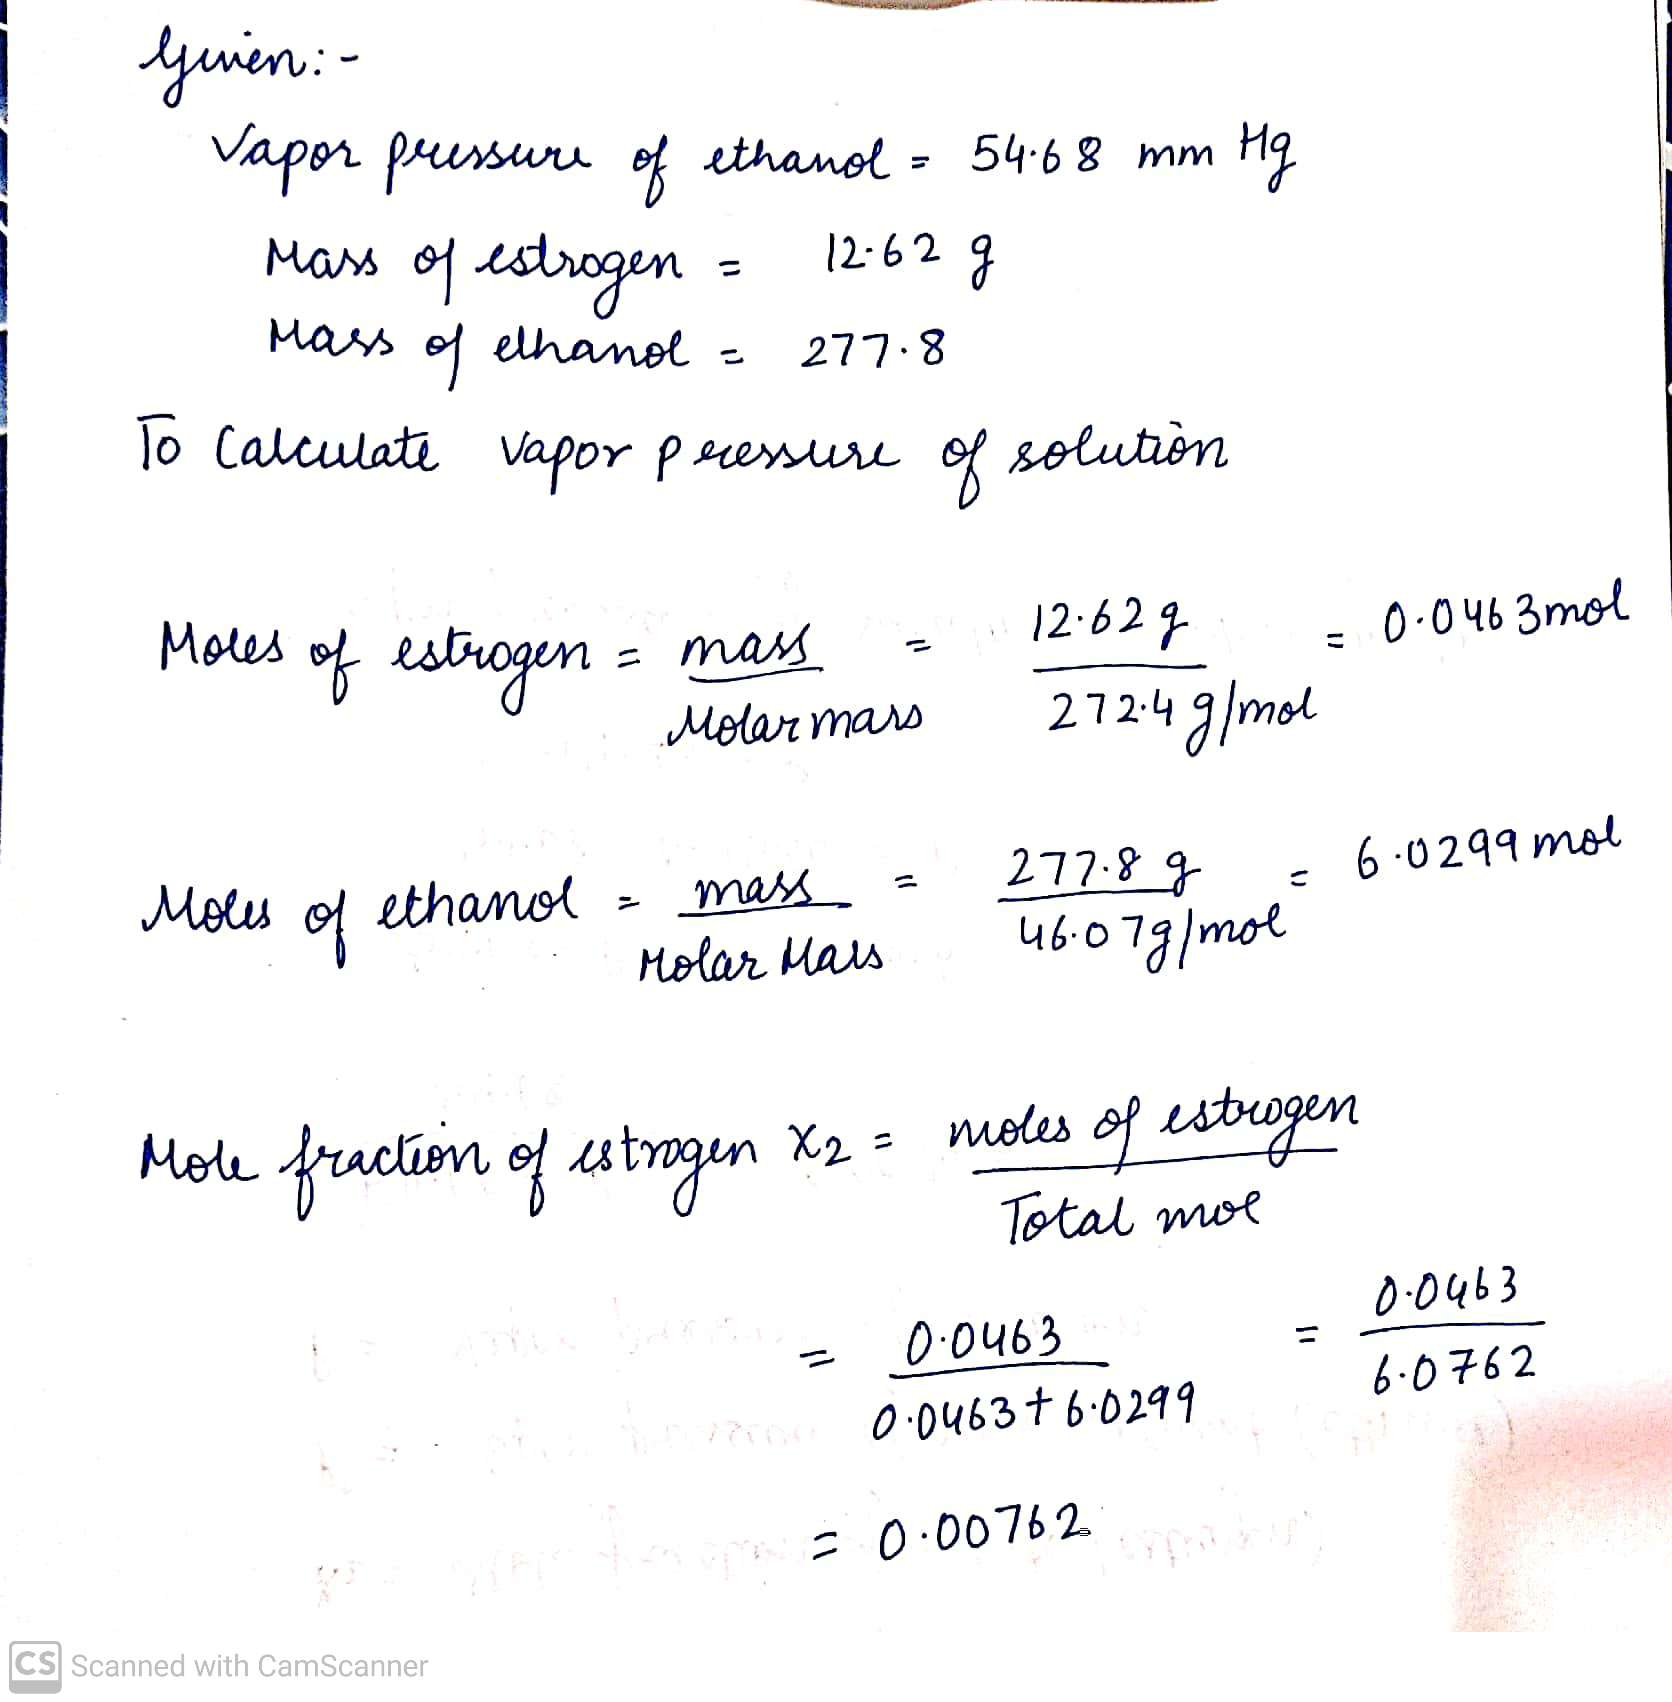 Given:-
Vapor pressure of ethanol = 54.68 mm Hg
Mass of estrogen = 12.62 g
Mass of ethanol = 277.8
To Calculate vapor pressure of solution
Moles of estrogen = mass / Molar mass = 12.62 g / 272.4 g/mol = 0.0463 mol
Moles of ethanol = mass / Molar Mass = 277.8 g / 46.07 g/mol = 6.0299 mol
Mole fraction of estrogen X2 = moles of estrogen / Total mol
= 0.0463 / 0.0463 + 6.0299 = 0.0463 / 6.0762
= 0.00762
CS Scanned with CamScanner